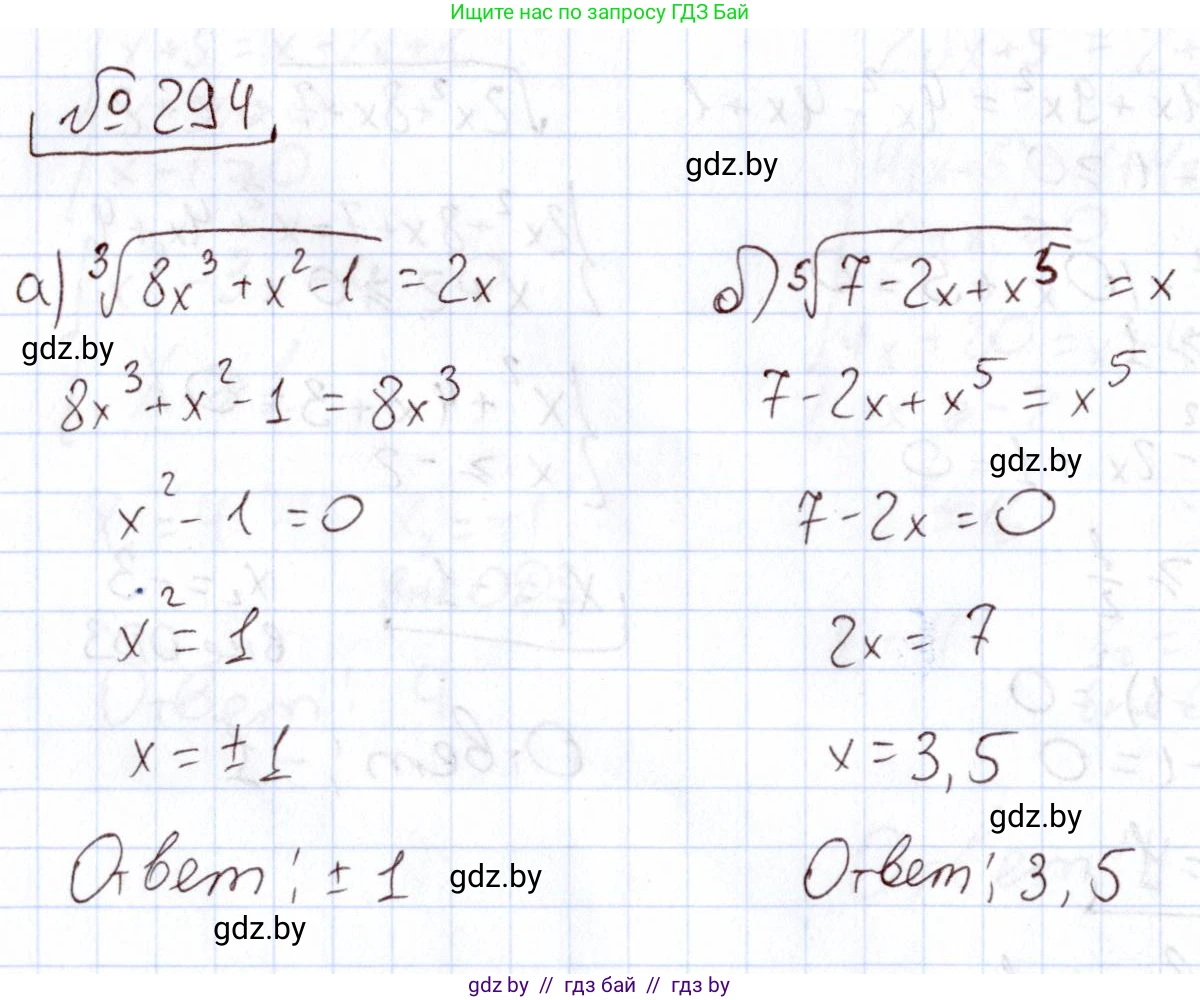 Ищите нас по запросу ГДЗ Бай
№ 294
gdz.by
а) ∛(8x³ + x² - 1) = 2x
gdz.by
8x³ + x² - 1 = 8x³
x² - 1 = 0
x² = 1
x = ± 1
Ответ: ± 1
gdz.by
gdz.by
б) ⁵√(7 - 2x + x⁵) = x
7 - 2x + x⁵ = x⁵
gdz.by
7 - 2x = 0
2x = 7
x = 3,5
gdz.by
Ответ: 3,5
gdz by // гдз бай // гдз by